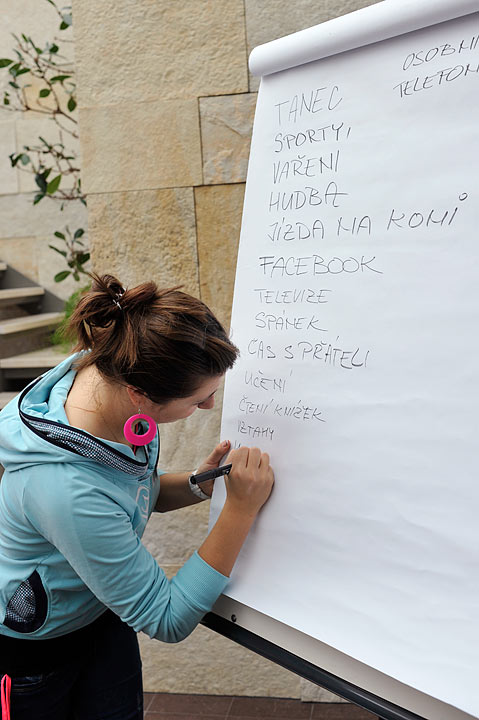 OSOBNÍ
TELEFON
TANEC
SPORTY,
VAŘENI
HUDBA
JÍZDA NA KONI
FACEBOOK
TELEVIZE
SPÁNEK
ČAS S PŘÁTELI
UČENÍ
ČTENÍ KNÍŽEK
VZTAHY